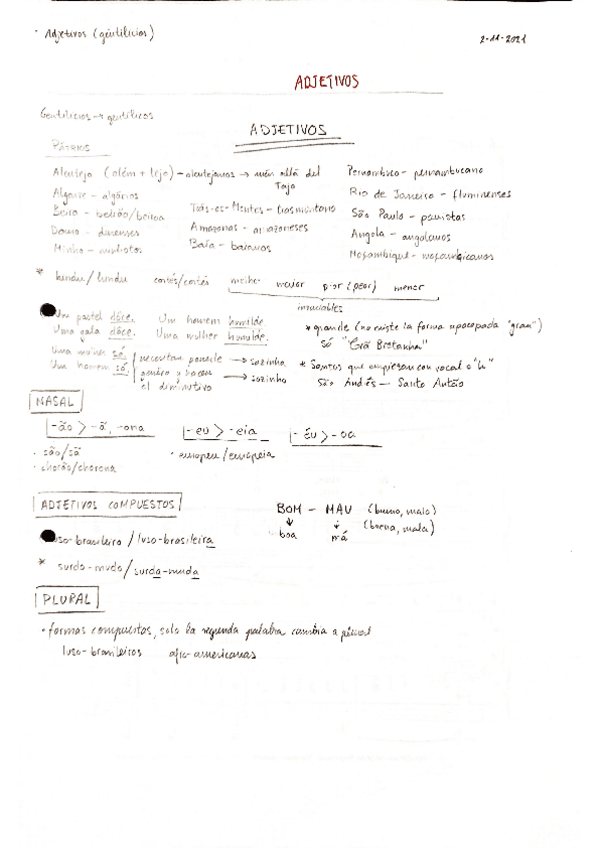 · Adjetivos (gentilicios)
2-11-2021
ADJETIVOS
Gentilicios → gentílicos
ADJETIVOS
PÁTRIOS
Alentejo (além + Tejo) - alentejanos → más allá del Tajo
Algarve - algárvios
Beira - beirão/beiroa
Douro - durienses
Minho - minhotos
Trás-os-Montes - trasmontano
Amazonas - amazonenses
Baía - baianos
Pernambuco - pernambucano
Rio de Janeiro - fluminenses
São Paulo - paulistas
Angola - angolanos
Moçambique - moçambicanos
* hindu/hindu cortés/cortés melhor maior pior (peor) menor
invariables
Um pastel dôce. Um homem humilde
Uma gala dôce. Uma mulher humilde.
Uma mulher só
Um homem só.
necesitan ponerle género y hacen el diminutivo
→ sozinha
→ sozinho
* grande (no existe la forma apocopada "gran")
só "Grã Bretanha"
* Santos que empiezan con vocal o "h"
São Andrés - Santo Antão
NASAL
-ão > -ã, -ona
· são/sã
· chorão/chorona
-eu > -eia
· europeu/europeia
-éu > -oa
ADJETIVOS COMPUESTOS
luso-brasileiro / luso-brasileira
* surdo-mudo/surda-muda
BOM - MAU (bueno, malo)
boa má (buena, mala)
PLURAL
· formas compuestas, solo la segunda palabra cambia a plural
luso-brasileiros afro-americanas